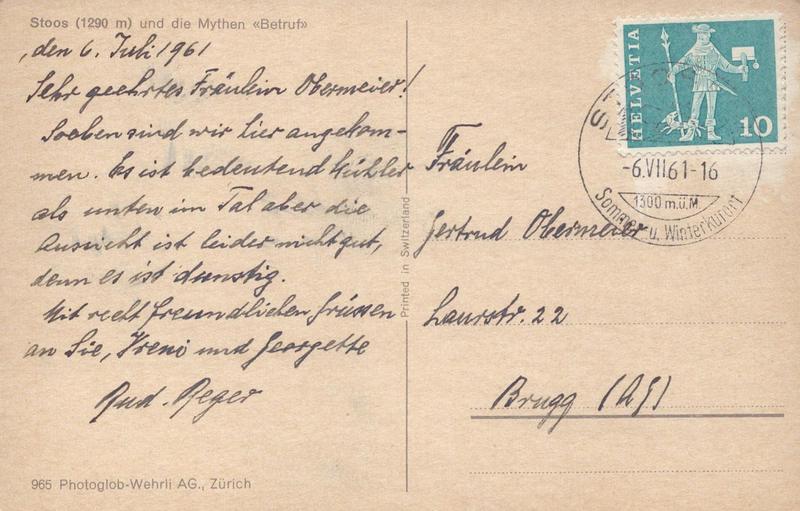 Stoos (1290 m) und die Mythen «Betruf»
den 6. Juli 1961
Sehr geehrtes Fräulein Obermeier!
Soeben sind wir hier angekom-
men. Es ist bedeutend kühler
als unten im Tal aber die
Aussicht ist leider nicht gut,
denn es ist dunstig.
Mit recht freundlichen Grüssen
an Sie, Vreni und Georgette
Rud. Reger
965 Photoglob-Wehrli AG., Zürich
Printed in Switzerland
HELVETIA
10
-6.VII61-16
1300 m.ü.M
Sommer u. Winterkurort
Fräulein
Gertrud Obermeier
Laurstr. 22
Brugg (AG)